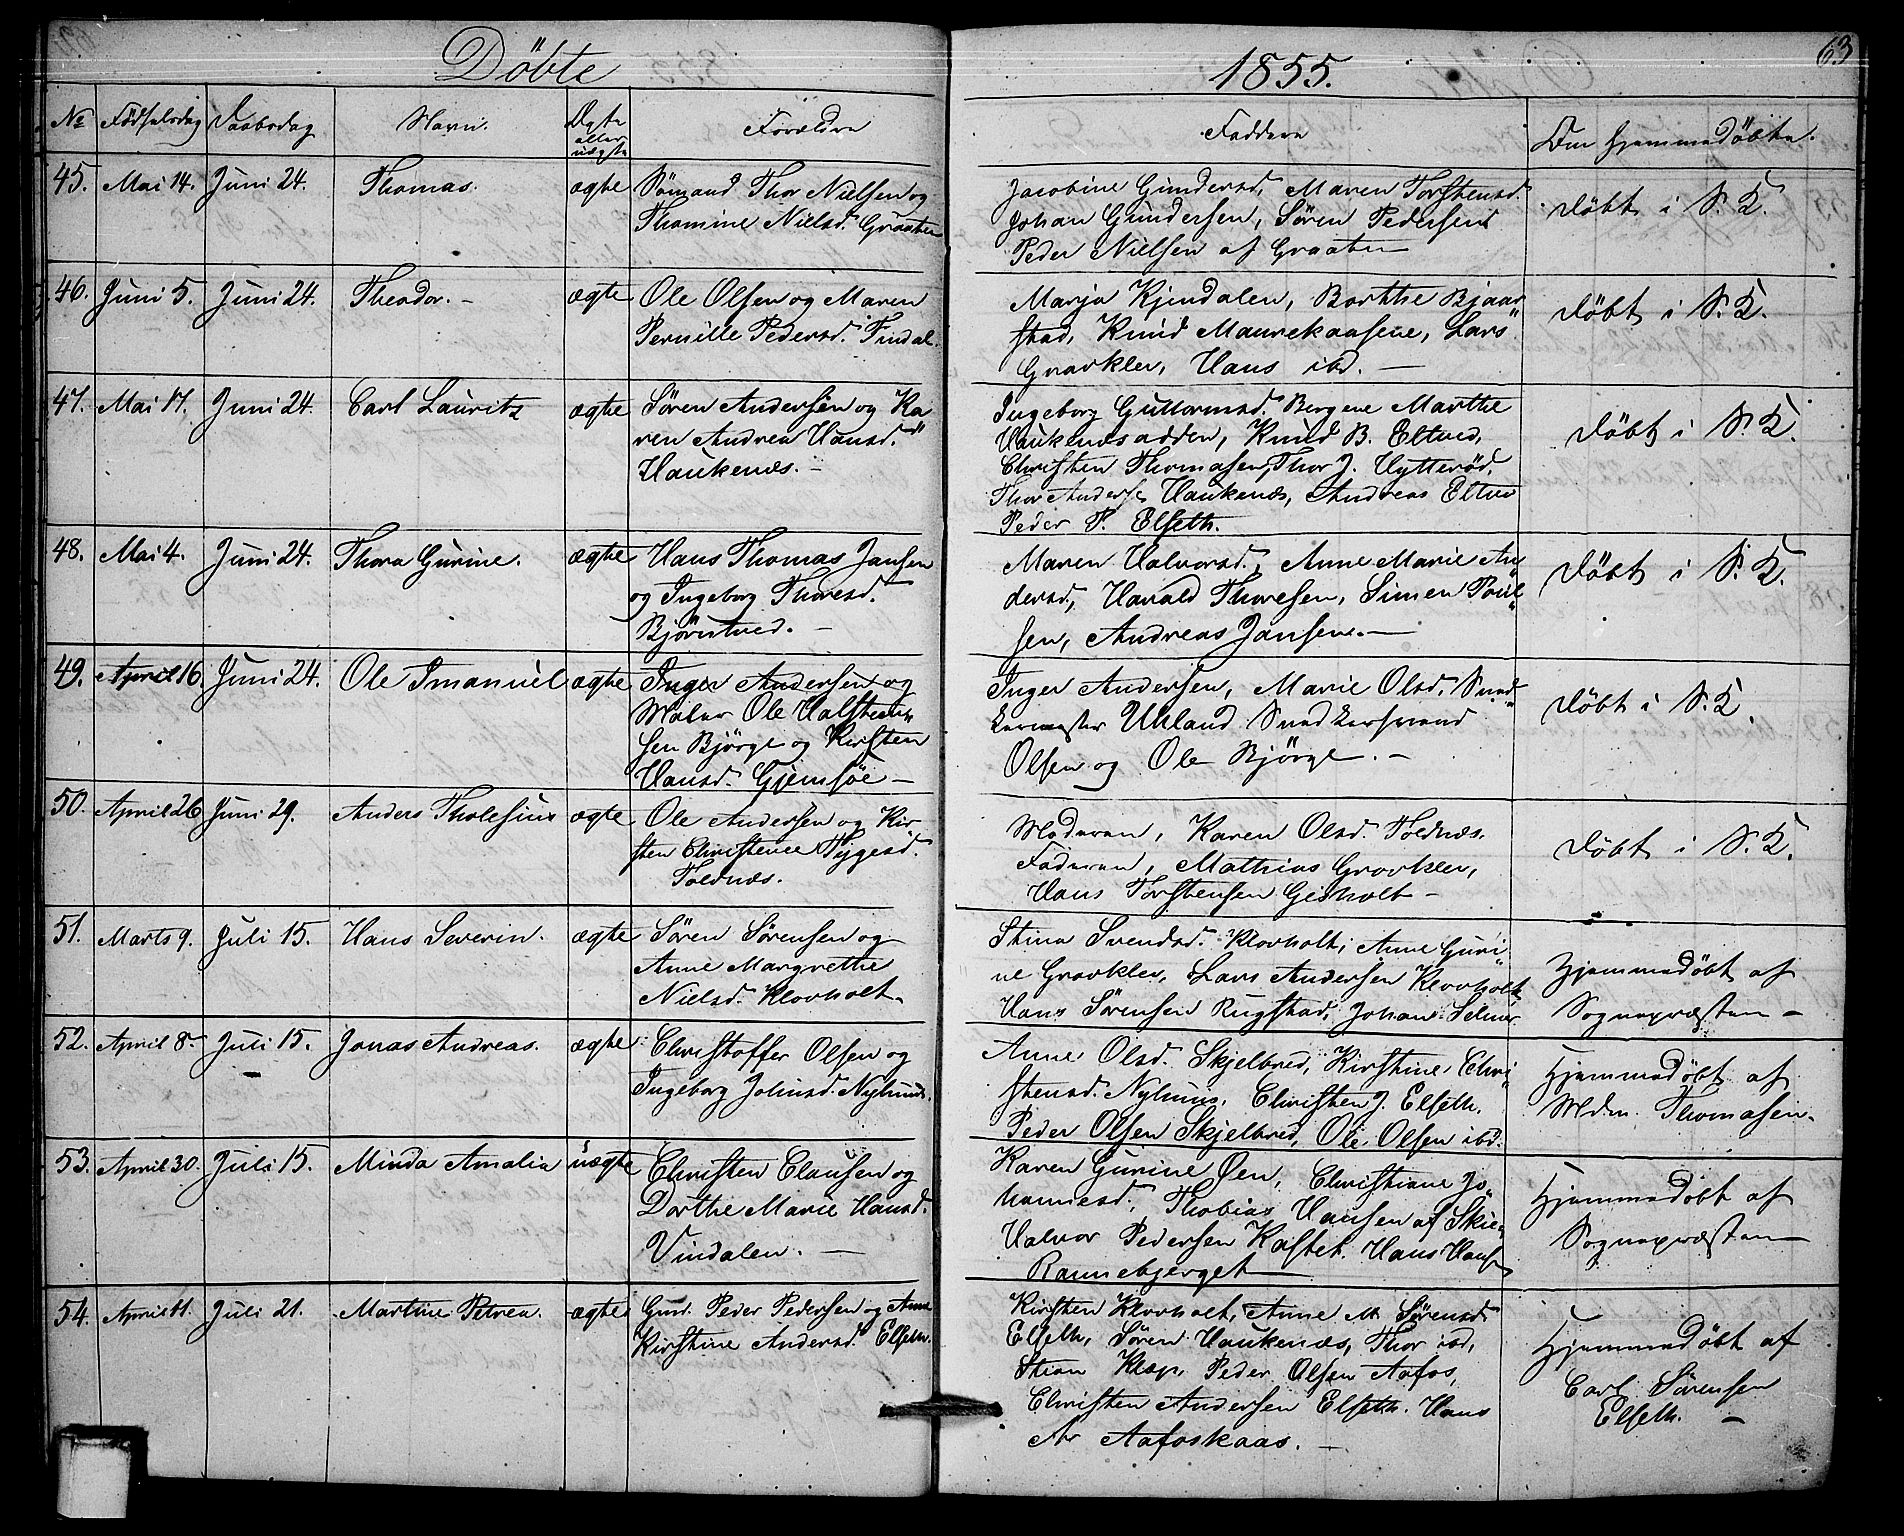 Döbte
1855.
63
№ Födselsdag Daabsdag Navn. Ægte eller uægte Forældre Faddere Om hjemmedöbte.
45. Mai 14. Juni 24. Thomas. ægte Sömand Thor Nielsen og
Thomine Nielsd. Graaten
Jacobine Gundersd, Maren Torstensd.
Johan Gundersen, Sören Pedersen
Peder Nielsen af Graaten
Döbt i S. K.
46. Juni 5. Juni 24. Theodor. – ægte Ole Olsen og Maren
Pernille Pedersd. Findal.
Marja Kjendalen, Barthe Bjaar
stad, Knud Maurekaasene, Lars
Gravkler, Hans ibd. –
Döbt i S. K.
47. Mai 17. Juni 24. Carl Lauritz ægte Sören Andersen og Ka
ren Andrea Hansd.
Haukenæs. –
Ingeborg Guttormsd. Bergene Marthe
Haukenæsodden, Knud B. Eltved,
Christen Thomasen, Thor J. Hytteröd,
Thor Anderse Haukenæs, Andreas Eltve
Peder P. Elseth.
Döbt i S. K.
48. Mai 4. Juni 24. Thora Gurine. ægte Hans Thomas Jansen
og Ingeborg Thoresd.
Björntved. –
Maren Halvorsd., Anne Marie An
dersd, Harald Thoresen, Simen Poul
sen, Andreas Jansen. –
Döbt i S. K.
49. April 16. Juni 24. Ole Imanuel ægte Inger Andersen og
Maler Ole Halsten
sen Björge og Kirsten
Hansd. Gjemsöe –
Inger Andersen, Marie Olsd, Sned
kermester Uhland Snedkersvend
Olsen og Ole Björge. –
Döbt i S. K.
50. April 26 Juni 29. Anders Tholesius ægte Ole Andersen og Kir
sten Christence Tygesd.
Toldnæs.
Moderen, Karen Olsd. Toldnæs.
Faderen, Mathias Gravkler,
Hans Torstensen Gisholt –
Döbt i S. K.
51. Marts 9. Juli 15. Hans Severin. ægte Sören Sörensen og
Anne Margrethe
Nielsd. Klovholt.
Stina Svendsd. Klovholt, Anne Guri
ne Gravkler, Lars Andersen Klovholt,
Hans Sörensen Rugstad, Johan Selmer
Hjemmedöbt af
Sognepræsten –
52. April 8. Juli 15. Jonas Andreas. ægte Christoffer Olsen og
Ingeborg Johnsd. Nyhuus.
Anne Olsd. Skjelbred, Kirstine Chri
stensd. Nyhuus, Christen J. Elseth.
Peder Olsen Skjelbred, Ole Olsen ibd.
Hjemmedöbt af
Mdm. Thomasen –
53. April 30. Juli 15. Minda Amalia uægte Christen Clausen og
Dorthe Marie Hansd.
Vindalen. –
Karen Gurine Öen, Christiane Jo
hannesd, Thobias Hansen af Skien
Halvor Pedersen Kastet. Hans Hans
Rannebjerget
Hjemmedöbt af
Sognepræsten –
54. April 11. Juli 21. Martine Petrea. ægte Gmd. Peder Pedersen og Anne
Kirstine Andersd Elseth.
Kirsten Klovholt, Anne M. Sörensd
Elseth, Sören Haukenæs, Thor ibd,
Stian Klep, Peder Olsen Aafos,
Christen Andersen Elseth. Hans
Aafoskaas. –
Hjemmedöbt af
Carl Sörensen
Elseth. –